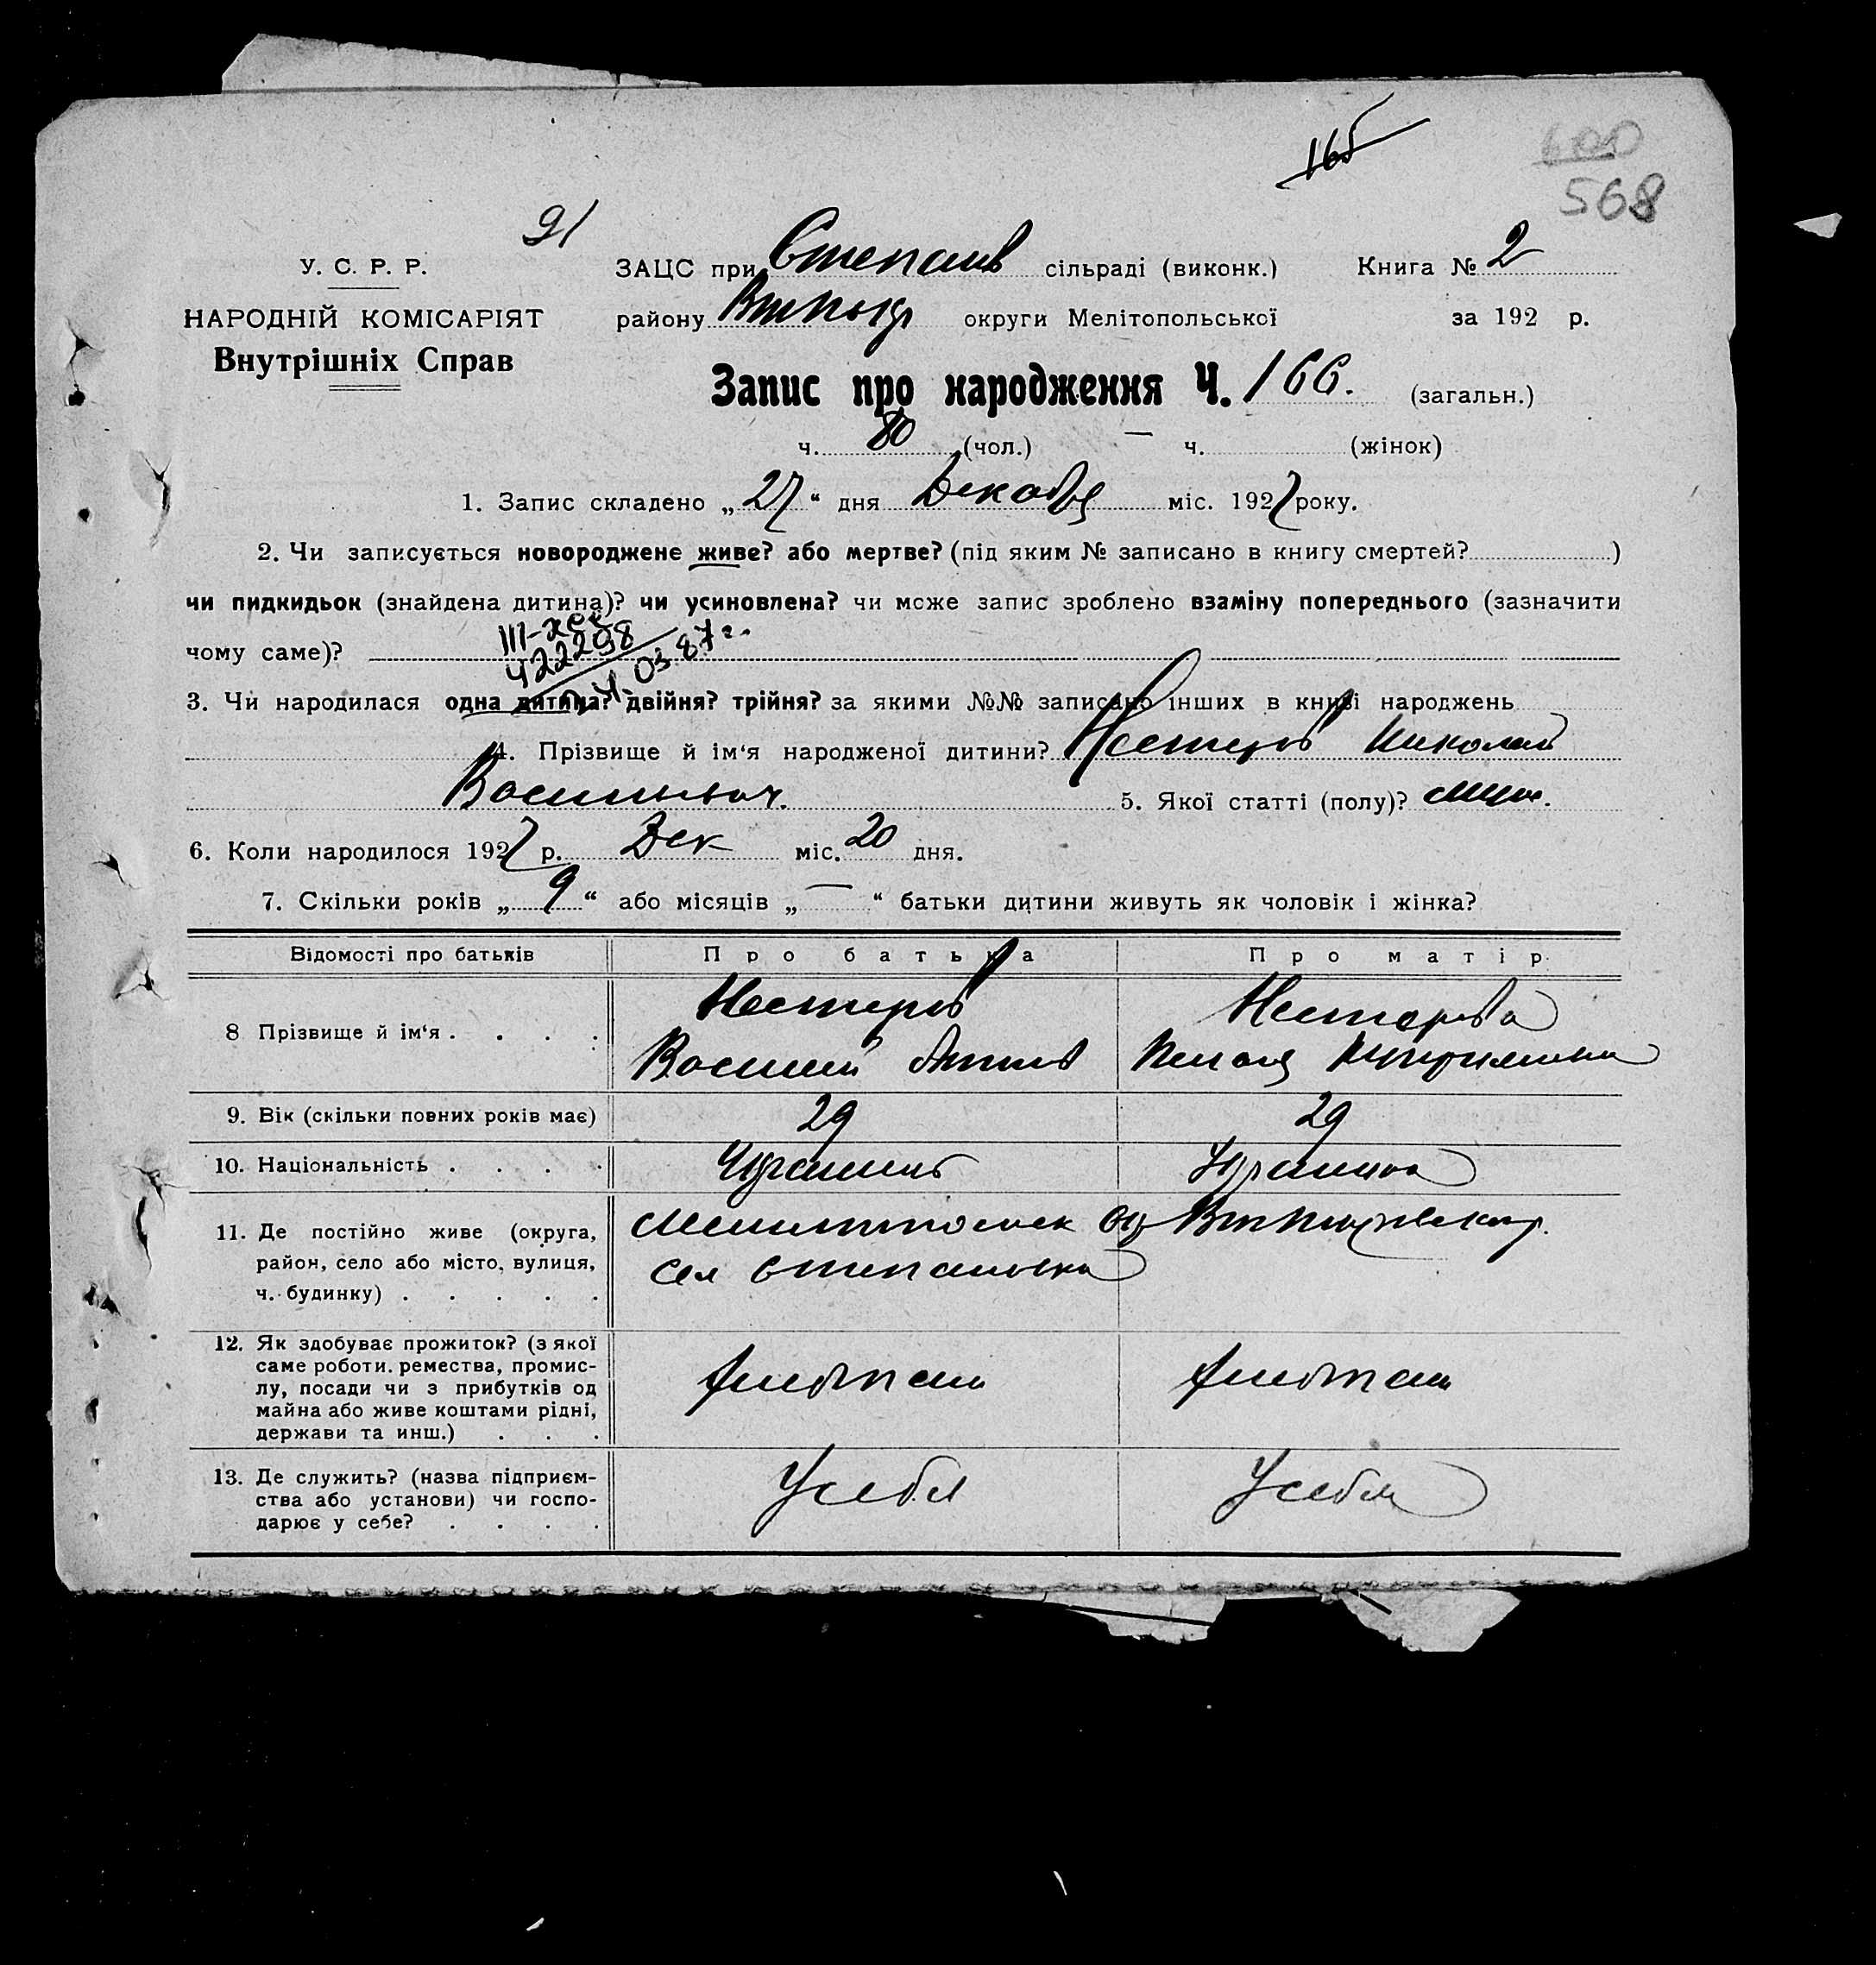 165
600
568
91
У. С. Р. Р.
НАРОДНІЙ КОМІСАРІЯТ
Внутрішніх Справ
ЗАЦС при Степанів сільраді (виконк.) Книга № 2
району округи Мелітопольської за 192 р.
Запис про народження Ч. 166. (загальн.)
ч. 80 (чол.) — ч. (жінок)
1. Запис складено „27“ дня Декабря міс. 1927 року.
2. Чи записується новороджене живе? або мертве? (під яким № записано в книгу смертей? )
чи пидкидьок (знайдена дитина)? чи усиновлена? чи може запис зроблено взаміну попереднього (зазначити
чому саме)?
422298
03.87г.
3. Чи народилася одна дитина? двійня? трійня? за якими №№ записано інших в книзі народжень
4. Прізвище й ім‘я народженої дитини? Нестеров Николай
Васильевич. 5. Якої статті (полу)?
6. Коли народилося 1927 р. Дек міс. 20 дня.
7. Скільки років „9“ або місяців „—“ батьки дитини живуть як чоловік і жінка?
Відомості про батьків Про батька Про матір
8 Прізвище й ім‘я . . . . Нестеров Нестерова
Василий
9. Вік (скільки повних років має) 29 29
10. Національність . . . .
11. Де постійно живе (округа,
район, село або місто, вулиця, сел Степановка
ч. будинку) . . . . .
12. Як здобуває прожиток? (з якої
саме роботи. ремества, промис-
лу, посади чи з прибутків од
майна або живе коштами рідні,
держави та инш.) . . .
Хлебопаш Хлебопаш
13. Де служить? (назва підприєм-
ства або установи) чи госпо-
дарює у себе? . . . .
У себя У себя